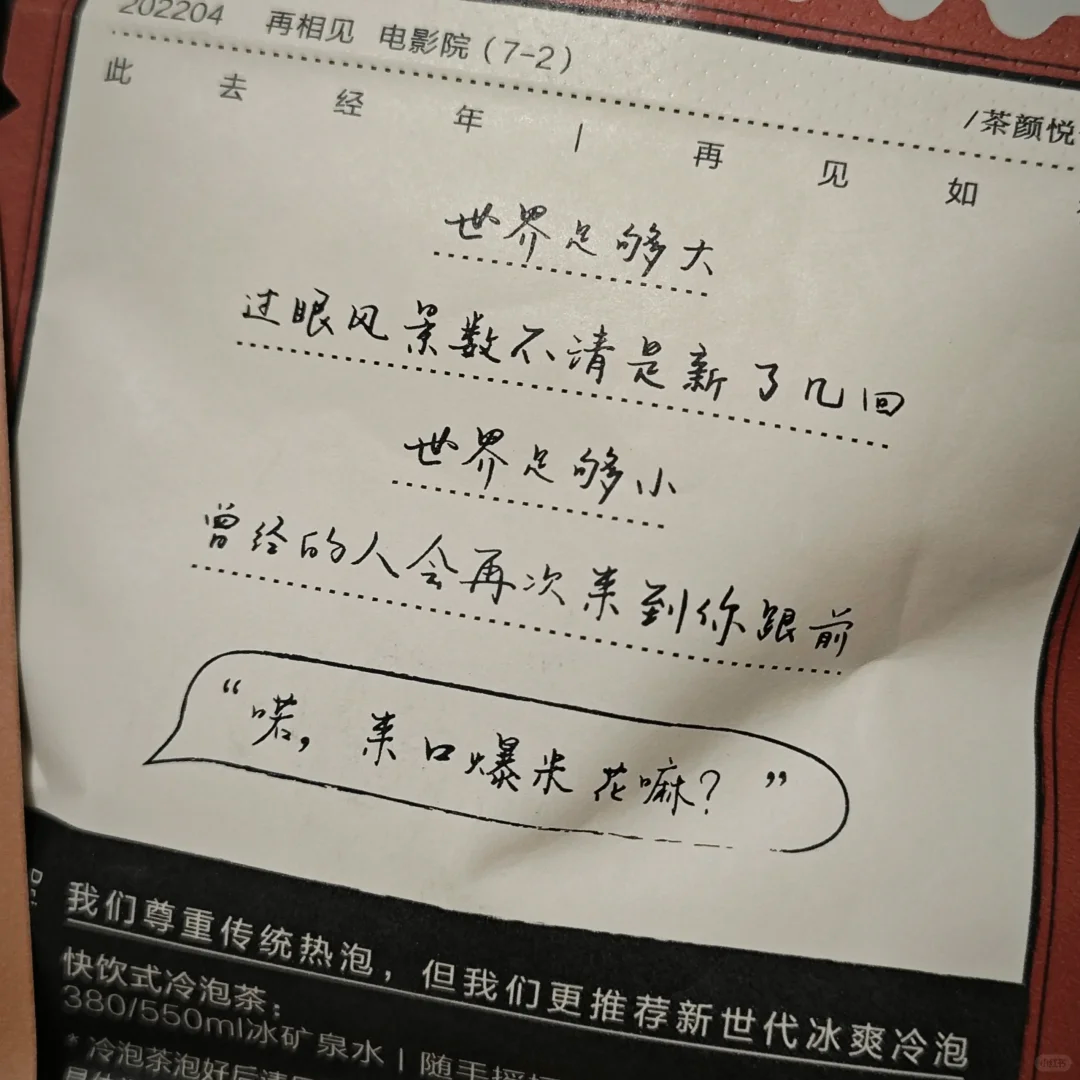 202204 再相见 电影院(7-2)
/茶颜悦
此去经年|再见如
世界足够大
过眼风景数不清是新了几回
世界足够小
曾经的人会再次来到你跟前
“喏，来口爆米花嘛？”
我们尊重传统热泡，但我们更推荐新世代冰爽冷泡
快饮式冷泡茶：
380/550ml冰矿泉水|随手摇
*冷泡茶泡好后请
小红书